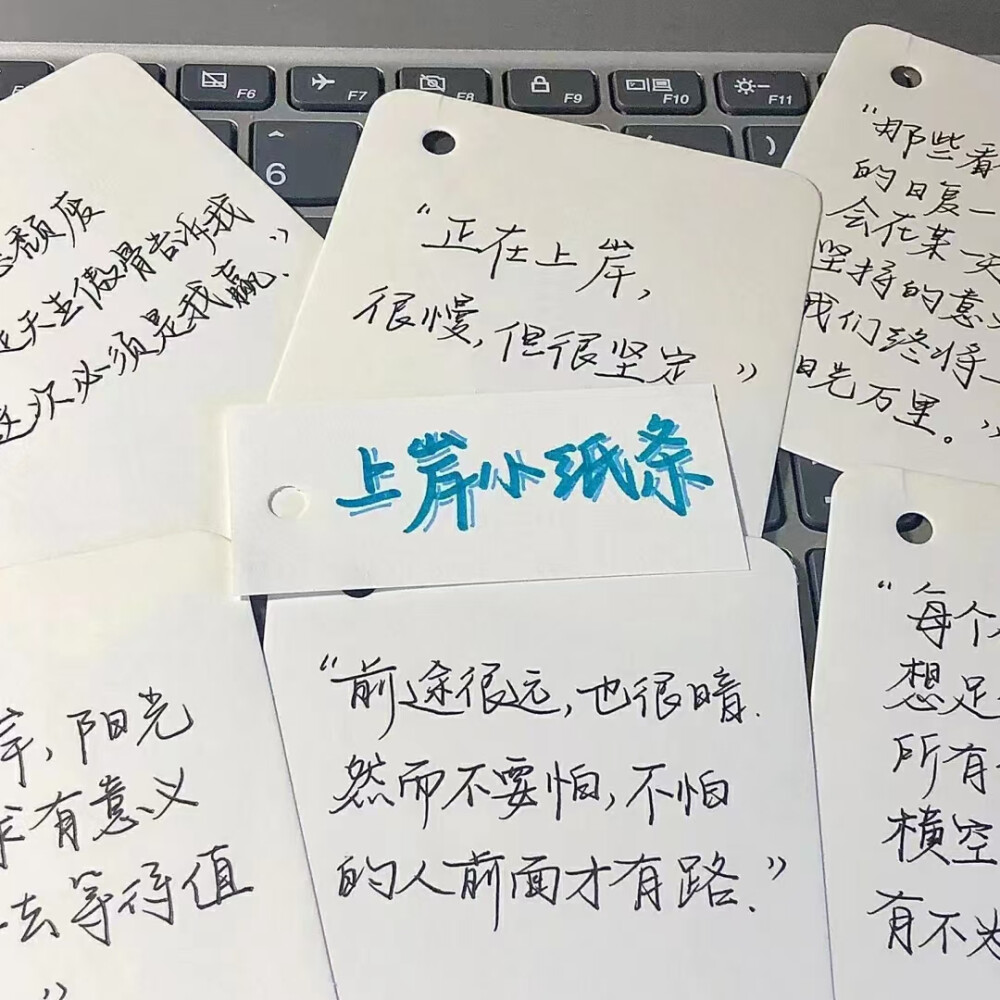 F6
F7
F8
F9
F10
F11
6
颓废
天生傲骨告诉我
这次必须是我赢.”
“正在上岸,
很慢,但很坚定”
“那些看
的日复一
会在某一天
坚持的意义
我们终将一
阳光万里。”
上岸小纸条
岸,阳光
有意义
去等得值
”
“前途很远,也很暗.
然而不要怕,不怕
的人前面才有路.”
“每个
想足
所有
横空
有不为